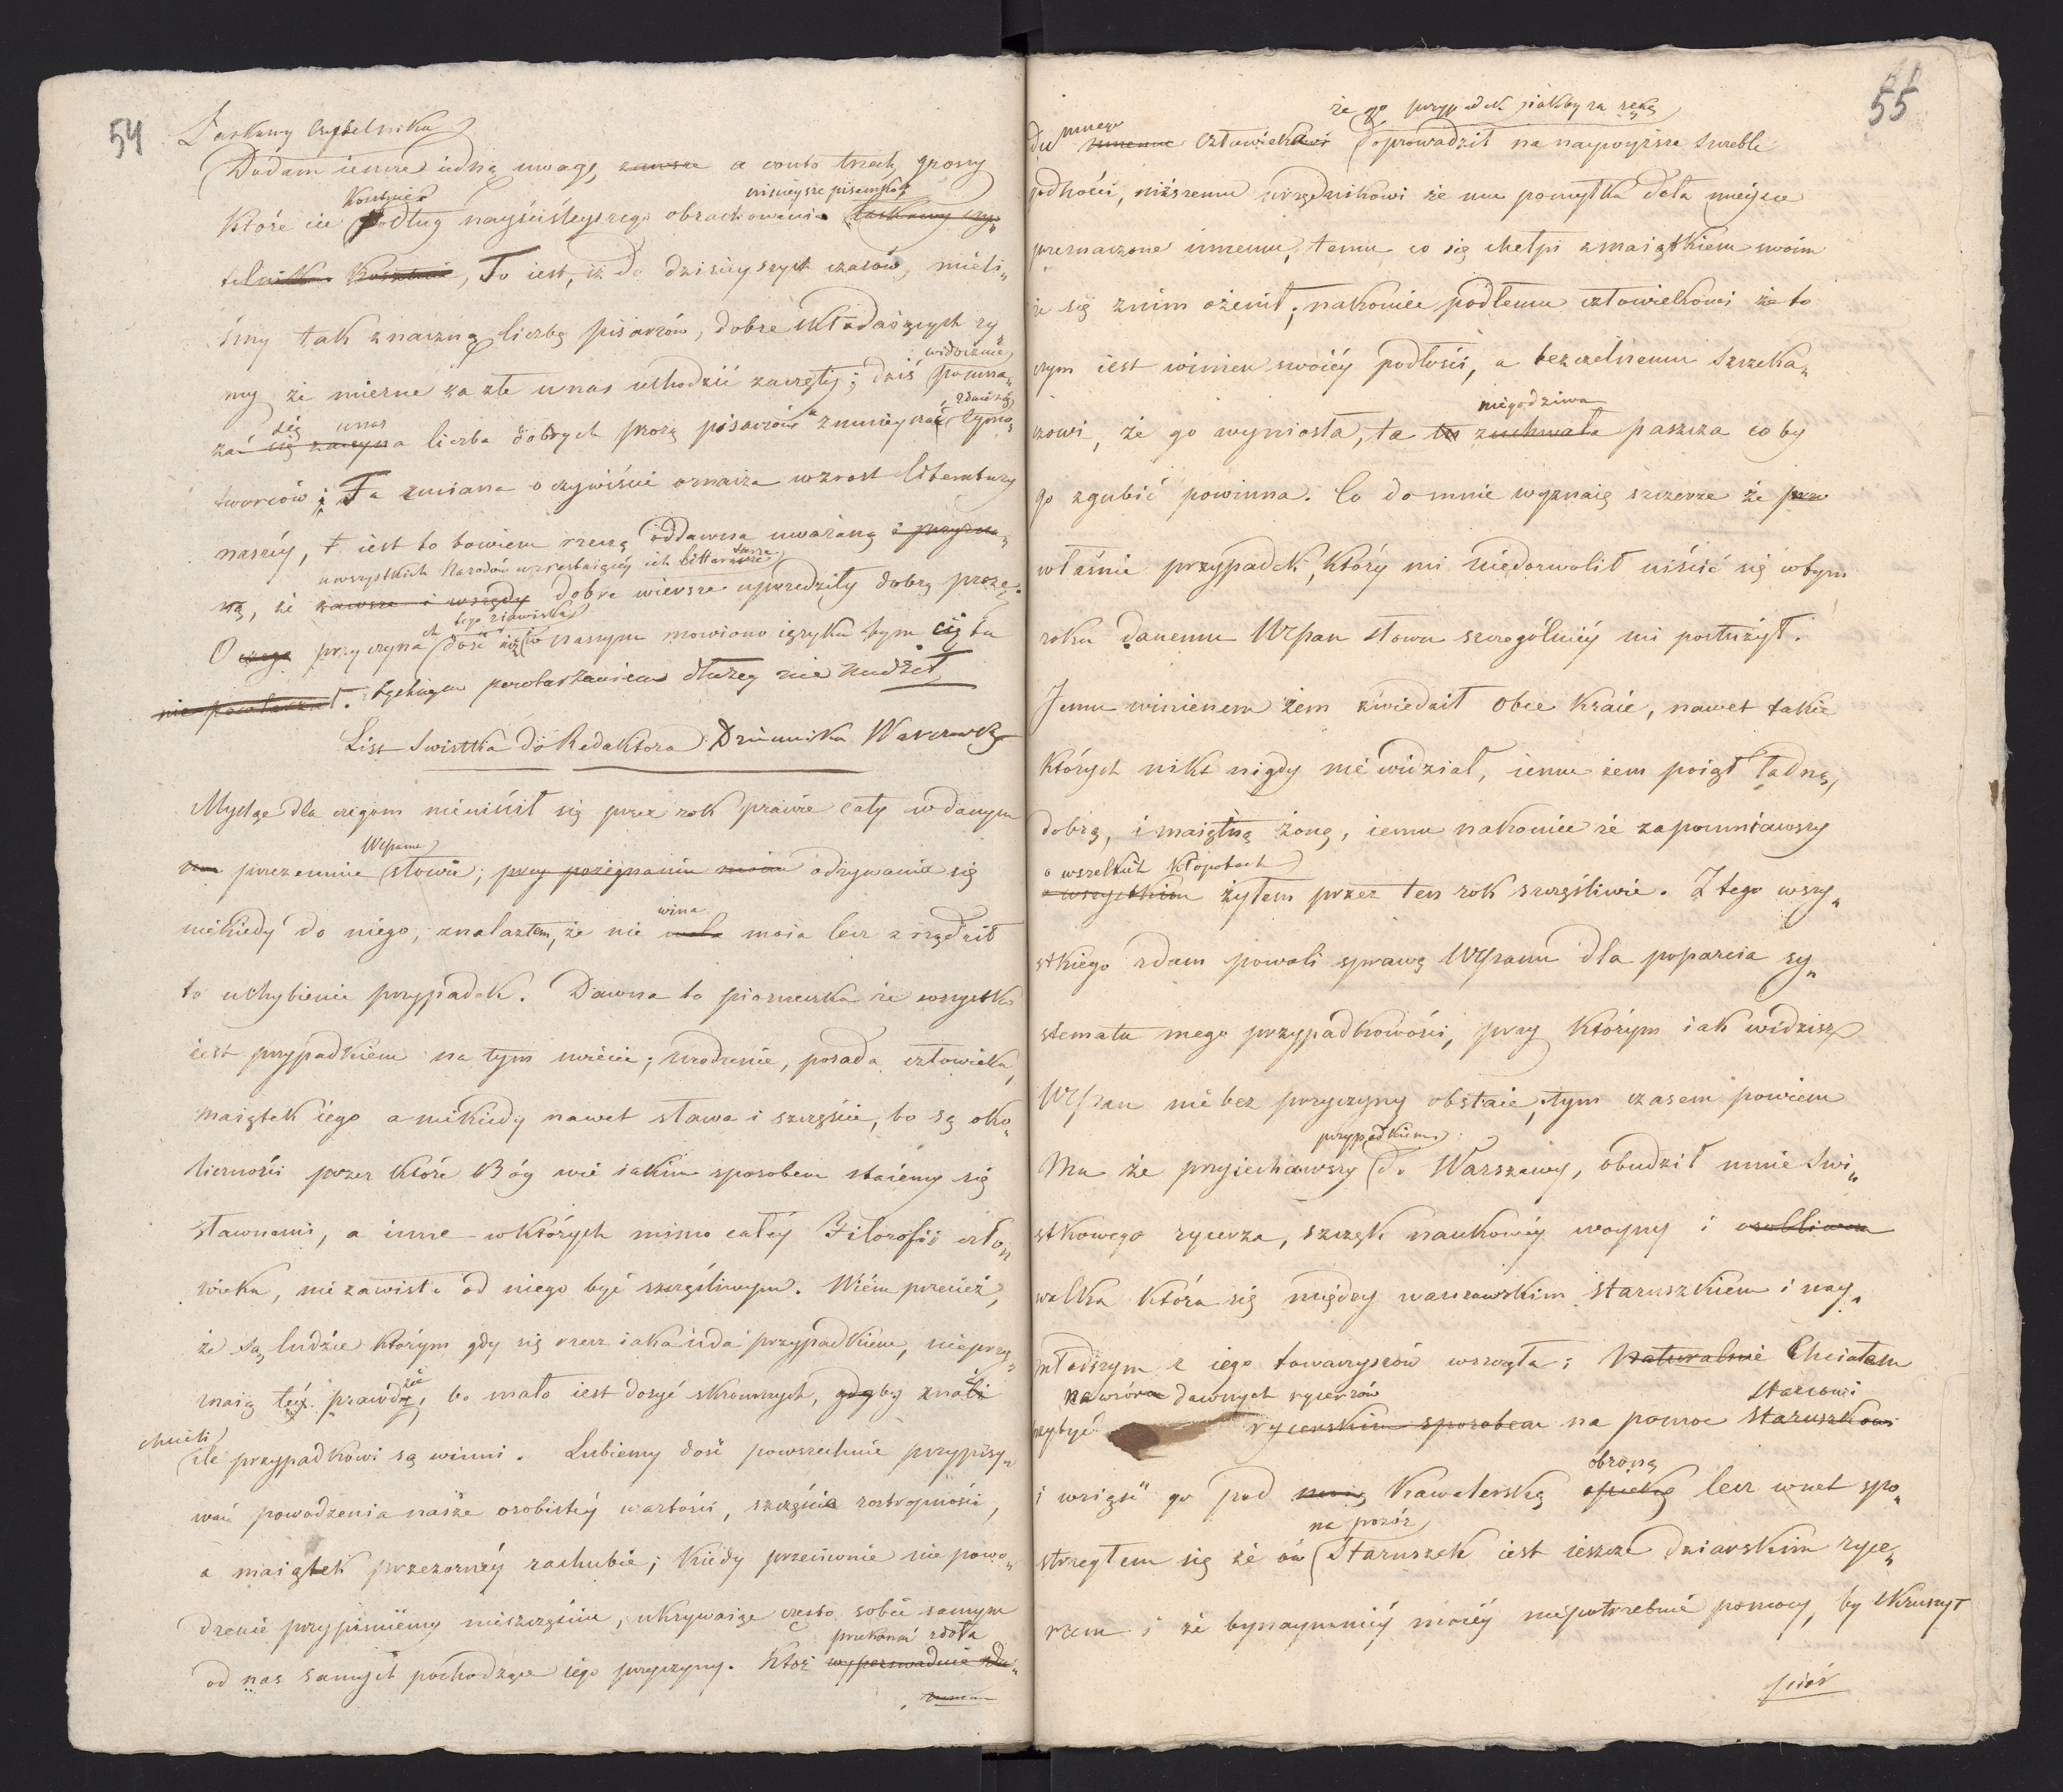 54
Łaskawy Czytelniku
Dodam ieszcze iedną uwagę, zawsze a conto trzech groszy
Kosztuie ninieysze pisemko
które cie podług nayściśleyszego obrachowania łaskawy czy„
telniku kosztuie, To iest, iż do dzisieyszych czasów, mieli„
śmy tak znaczną liczbę pisarzów, dobrze układaiących ry„
widocznie
my że mierne za złe u nas uchodzić zaczęły; dziś pomna„
się u nas zdaie się
żać się zaczyna liczba dobrych prozą pisarzów a zmnieyszać rymo„
tworców; Ta zmiana oczywiście oznacza wzrost literatury
naszéy, iest to bowiem rzeczą oddawna uważaną i przyzna„
u wszystkich Narodów wzrastaiącéy ich litteratury
ną, że zawsze i wszędy dobre wiersze uprzedziły dobrą prozę.
tego ziawiska
O czego przyczynach dość iuż w naszym mowiono ięzyku bym cię tu
nie powtarzał. tychżem powtarzaniem dłużey nie nudził
List Swistka do Redaktora Dziennika Warszawsk.
Myśląc dla czegom nieuiścił się przez rok prawie cały w danym
WPanu
przezemnie słowie; przy pożegnaniu moim odzywanie się
niekiedy do niego, znalazłem, że nie
wina
wola moia lecz zrządził
to uchybienie przypadek. Dawna to piosneczka że wszystko
iest przypadkiem na tym swiecie; urodzenie, posada człowieka,
maiątek iego a niekiedy nawet sława i szczęście, bo są oko„
liczności przez które Bóg wie iakim sposobem staiemy się
sławnemi, a inne w których mimo całéy Filozofii czło„
wieka, nie zawisło od niego być szczęśliwym. Wiém przecież,
że są ludzie którym gdy się rzecz iaka uda przypadkiem, nieprzy„
znaią téy prawdzie, bo mało iest dosyć skromnych, gdyby znali
chcieli
ile przypadkowi są winni. Lubiemy dość powszechnie przypisy„
wać powodzenia nasze osobistéy wartości, szczęście roztropności,
a maiątek przezornéy rachubie; kiedy przeciwnie niepowo„
dzenie przypisuiemy nieszczęściu, ukrywaiąc często sobie samym
przekonać zdoła
od nas samych pochodzące iego przyczyny. Ktoż wyperswaduie
55
że go przypadek iakby za rękę
innego
człowiekowi doprowadził na naywyższe szczeble
godności, niższemu urzędnikowi że mu pomyłka dała mieysce
przeznaczone innemu, temu co się chełpi z maiątkiem swoim
że się z nim ożenił; nakoniec podłemu człowiekowi że to
czym iest winien swoiéy podłości, a bezczelnemu szczeka„
niegodziwa
czowi, że go wyniosła, ta zuchwała paszcza co by
go zgubić powinna. Co do mnie wyznaię szczerze że
własnie przypadek, który mi niedozwolił uiścić się w tym
roku danemu WPan słowu szczególniéy mi posłużył.
Jemu winienem żem zwiedził obce kraie, nawet takie
których nikt nigdy nie widział, iemu żem poiął ładną,
dobrą, i maiętną żonę, iemu nakoniec że zapomniawszy
o wszelkich kłopotach
o wszystkim żyłem przez ten rok szczęśliwie. Z tego wszy„
stkiego zdam powoli sprawę WPanu dla poparcia sy„
stematu mego przypadkowości, przy którym iak widzisz
WPan nie bez przyczyny obstaie, tym czasem powiem
przypadkiem
Mu że przyiechawszy do Warszawy, obudził mnie Swi„
stkowego rycerza, szczęk naukowéy woyny i osobliwsza
walka która się między warszawskim staruszkiem i nay„
młodszym z iego towarzyszów wszczęła; Naturalnie Chciałem
na wzór dawnych rycerzów starcowi
przybyć rycerskim sposobem na pomoc staruszkowi
obronę
i wziąść go pod moią kawalerską opiekę lecz wnet spo„
na pozór
strzegłem się że ów Staruszek iest ieszcze dziarskim ryce„
rzem i że bynaymniéy moiéy niepotrzebuie pomocy, by skruszył
piór